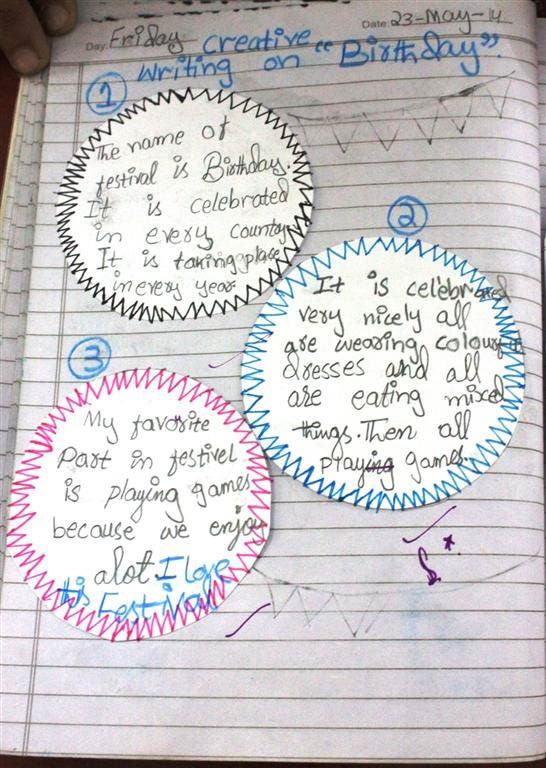 Day: Friday Date: 23-May-14
Creative
Writing on "Birthday".
1
The name of
festival is Birthday.
It is celebrated
in every country
It is taking place
in every year
2
It is celebrated
very nicely all
are wearing colourful
dresses and all
are eating mixed
things. Then all
playing games.
3
My favorite
Part in festivel
is playing games
because we enjoy
alot. I love
this Festival